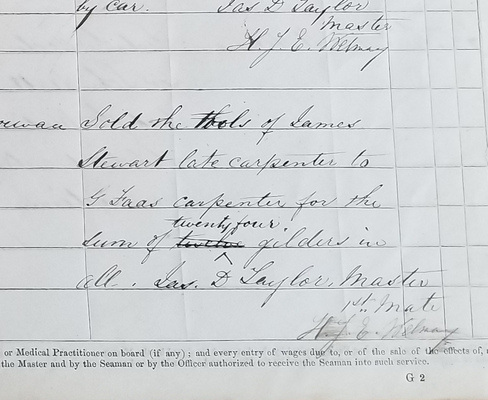 by car. Jas D Taylor
Master
H. J. E.
Sold the tools of James
Stewart late carpenter to
G Faas carpenter for the
twenty four
sum of twelve gilders in
all. Jas. D Taylor. Master
1st Mate
H. J. E.
or Medical Practitioner on board (if any); and every entry of wages due to, or of the sale of the effects of,
the Master and by the Seaman or by the Officer authorized to receive the Seaman into such service.
G 2